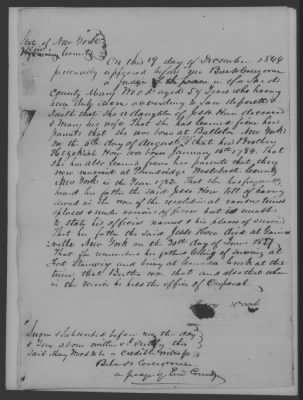 State of New York
Wyoming County
On this 19 day of December 1848
personally appeared before me
a Judge of the in & for Said
County Mary Wood aged 54 years who having
been duly sworn according to Law deposeth &
Saith that She is daughter of Jesse How deceased
& Mary his wife that she has learned from her
parents that she was born at Ballston New York
on the 6th day of August & that her Brother
Hezekiah How was born January 16th 1788. That
She has also learned from her parents that they
were married at Poundridge Westchester County
New York in the Year 1783 That She has frequently
heard her father the said Jesse How tell of having
served in the war of the revolution at various times
& places & under various officers but is unable
to state his officers names & his places of service
That her father the said Jesse How died at
ville New York on the 30th day of June 1827
That She remembers her father telling of serving at
Fort Stanwix and being at at the
time that Butler was shot and also that when
in the service he held the office of Corporal
Mary Wood
Sworn & Subscribed before me the day
& Year above written & I certify that
Said Mary Wood is a credible witness
a Judge of Erie County